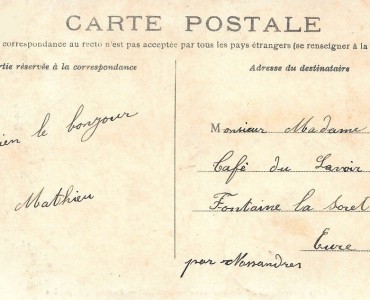 CARTE POSTALE
correspondance au recto n'est pas acceptée par tous les pays étrangers (se renseigner à la
rtie réservée à la correspondance
Adresse du destinataire
ien le bonjour
Mathieu
Monsieur Madame
Café du Lavoir
Fontaine la Soret
Eure
par Nassandres